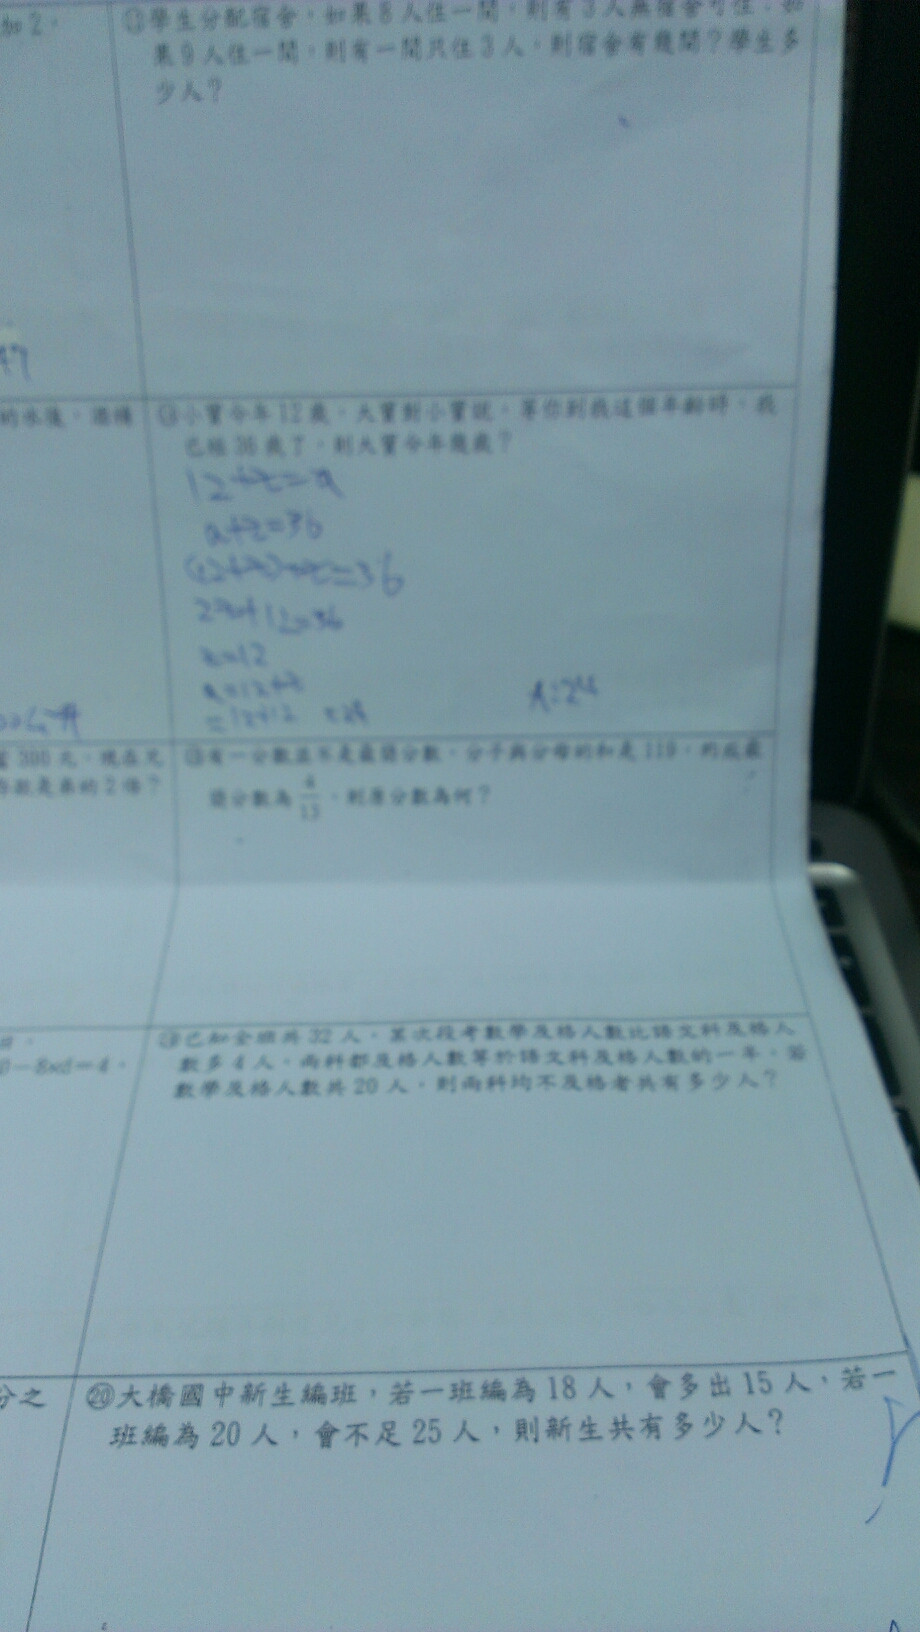 加2。
學生分配宿舍，如果8人住一間，則有3人無宿舍可住；如
果9人住一間，則有一間只住3人，則宿舍有幾間？學生多
少人？
47
的水後，酒精
小寶今年12歲，大寶對小寶說，等你到我這個年齡時，我
已經36歲了，則大寶今年幾歲？
12+z=a
a+z=36
(12+z)+z=36
12=36
z=12
a=12+z
=12+12 =24
A:24
300元，現在兄
是弟的2倍？
有一分數並不是最簡分數，分子與分母的和是119，約成最
簡分數為4/13，則原分數為何？
-8xd=4，
已知全班共32人，某次段考數學及格人數比語文科及格人
數多4人，兩科都及格人數等於語文科及格人數的一半，若
數學及格人數共20人，則兩科均不及格者共有多少人？
分之
⑳大橋國中新生編班，若一班編為18人，會多出15人，若一
班編為20人，會不足25人，則新生共有多少人？